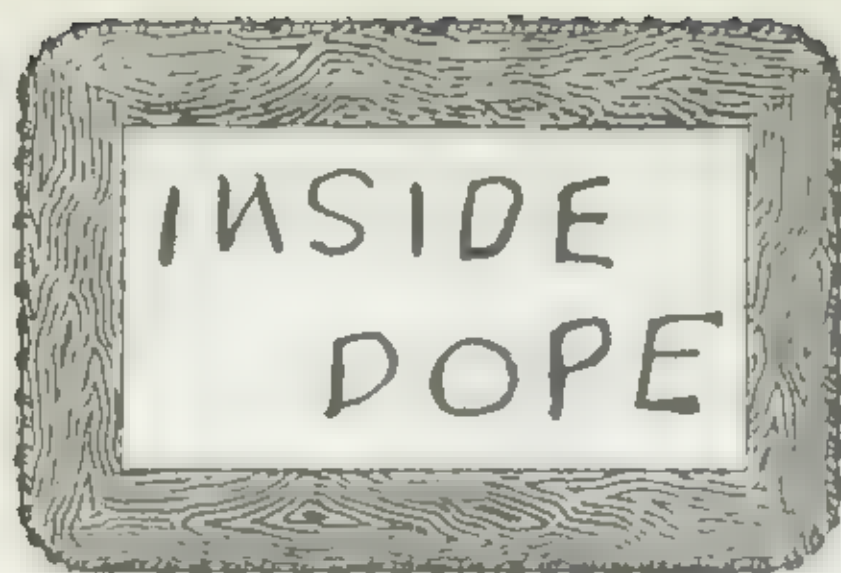 INSIDE
DOPE